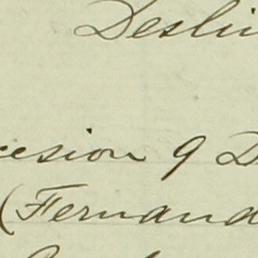 Deslin
cesion 9 D
(Fernand